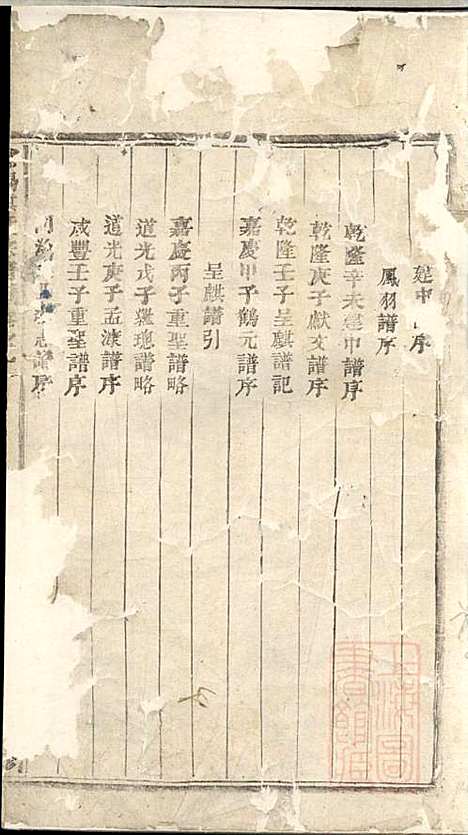 建中 序
鳳羽譜序
乾隆辛未建中譜序
乾隆庚子獻文譜序
乾隆壬子呈麒譜記
嘉慶甲子鶴元譜序
呈麒譜引
嘉慶丙子重聖譜略
道光戊子 琬譜略
道光庚子孟漆譜序
咸豐壬子重聖譜序
同 志譜序
上海圖書館藏